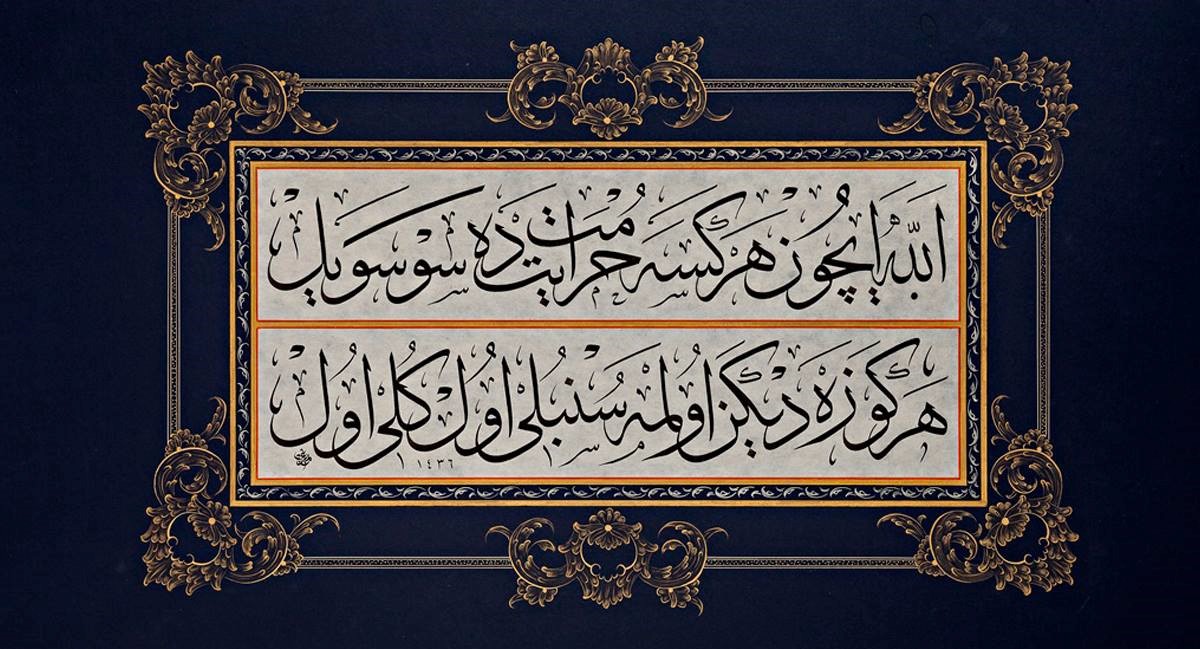 الله ایچون هركسه حرمت ایت ده سو سویل
هر كوزه دیكن اولمه سنبلی اول كلی اول
١٤٣٦